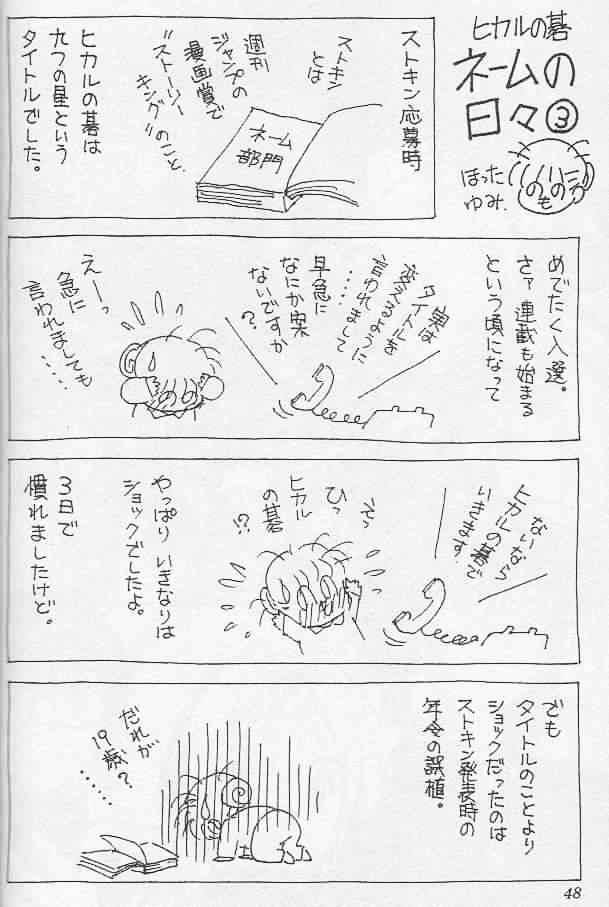 ヒカルの碁
ネームの
日々③
ほった
ゆみ
へのへのもへじ
ストキン応募時
ストキン
とは
週刊
ジャンプの
漫画賞で
"ストーリー
キング"のこと
ネーム
部門
ヒカルの碁は
九つの星という
タイトルでした。
めでたく入選。
さァ連載も始まる
という頃になって
実は
タイトルを
変えるように
言われまして
……
早急に
なにか案
ないですか
?
えーっ
急に
言われましても
……
ないなら
ヒカルの碁で
いきます。
えっ
ひっ
ヒカル
の碁
!?
やっぱりいきなりは
ショックでしたよ。
3日で
慣れましたけど。
でも
タイトルのことより
ショックだったのは
ストキン発表時の
年令の誤植。
だれが
19歳?
……
48